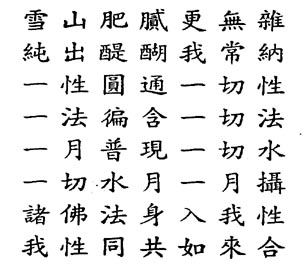 雪山肥膩更無雜
純出醍醐我常納
一性圓通一切性
一法徧含一切法
一月普現一切水
一切水月一月攝
諸佛法身入我性
我性同共如來合